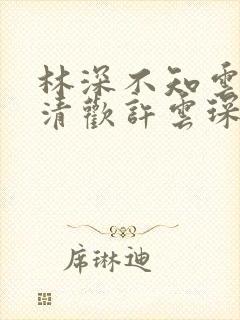 林深不知雲
清歡許雲琛
席琳迪